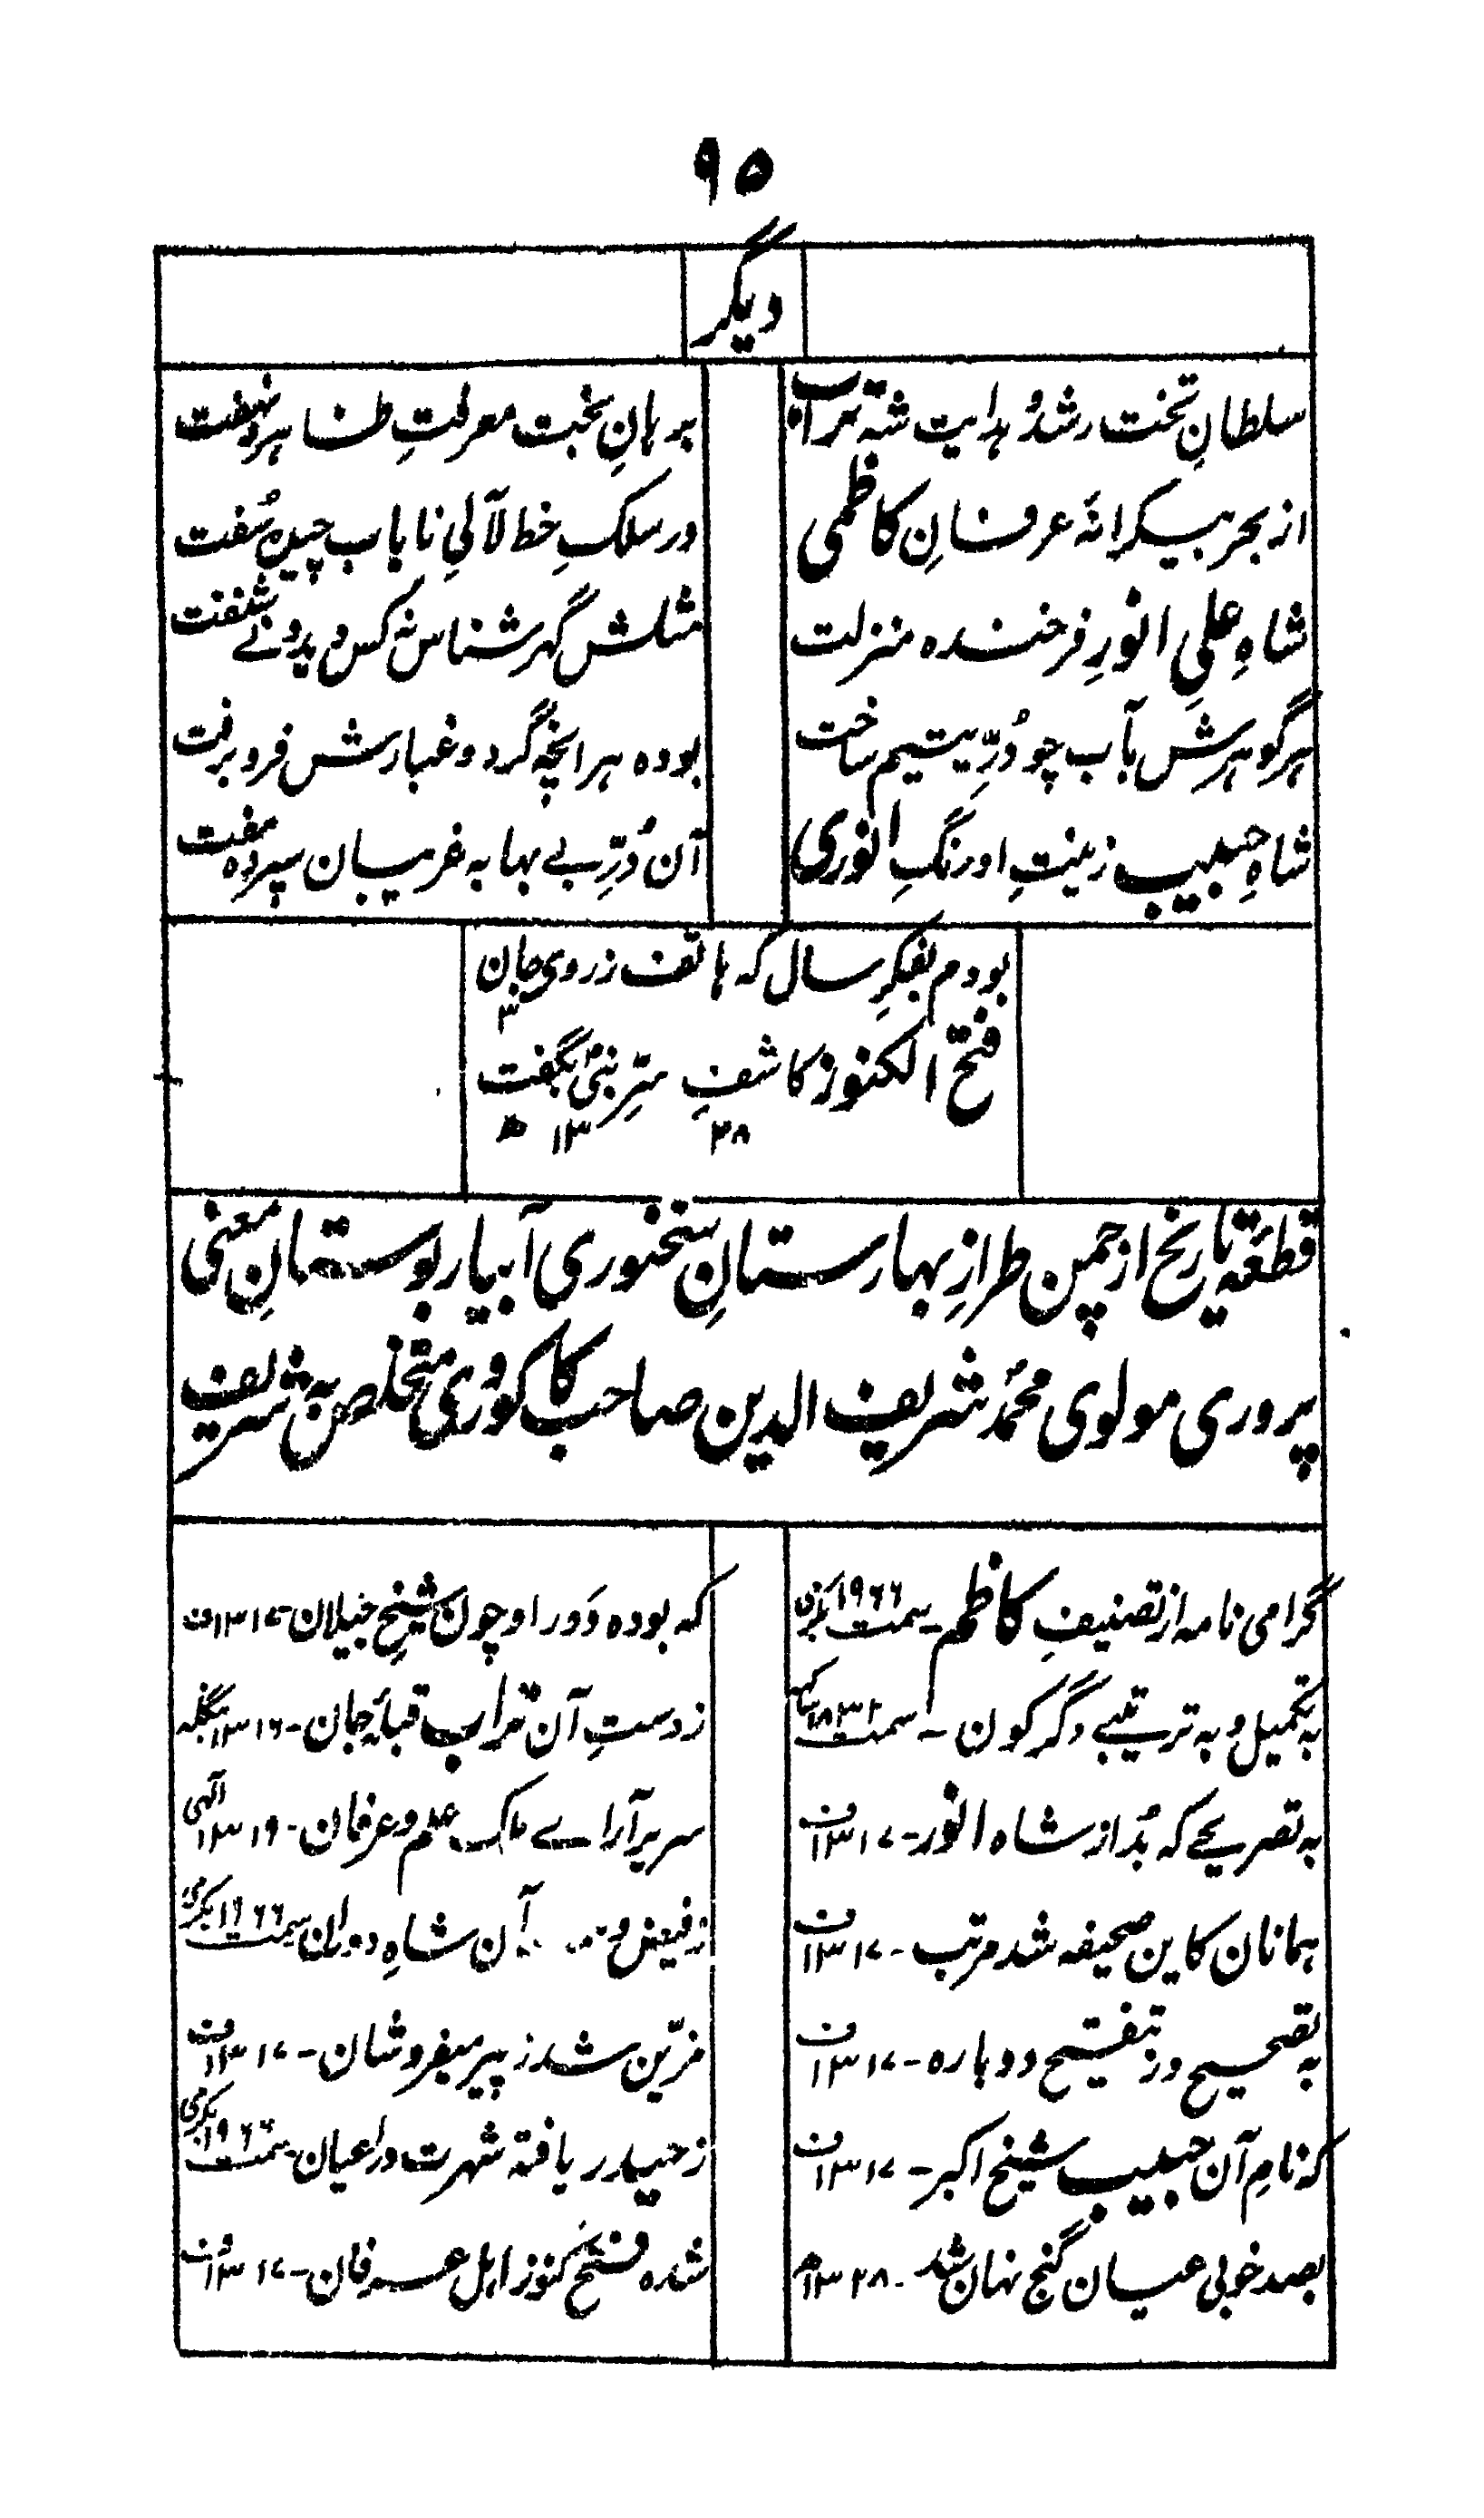 ۹۵
دیگر
سلطانِ تخت رشدُ ہدایت شہ تراب برہانِ بخت معرفتِ ظاہر و نہفت
از بحر بیکرانۂ عرفانِ کاظمی در سلکِ خط لآلیِ نایاب چیدہ سُفت
شاہِ علیِ انورِ فرخندہ منزلت مثلش گہر شناس نہ کس دید و نے شنفت
ہر گوہرش بآب چو دُرِّ یتیم ساخت بودہ ہر آنچہ گرد و غبارش فرو برفت
شاہِ حبیب زینتِ اورنگِ انوری آن دُرِّ بے بہا بہ غریبان سپردہ مفت
بودم بفکرِ سال کہ ہاتف ز روی جان
۳
فتح الکنوز کاشفِ سرِّ نبیؐ بگفت
۱۳ ۲۸ ھ
قطعۂ تاریخ از چمن طرازِ بہارستانِ سخنوری آبیار بوستانِ معنی
پروری مولوی محمدؐ شریف الدین صاحب کاکوروی متخلص بہ شریف
گرامی نامہ از تصنیفِ کاظم ـ سمت ۱۹۶۶ بکرمی کہ بودہ دَور او چون شیخِ جیلان ـ ۱۳۱۷ف
بہ تکمیل و بہ ترتیبے دگرگون ـ سمت ۱۸۳۲ ساکہ ز دستِ آن تراب قبلۂ جان ـ ۱۳۱۶ بنگلہ
بہ تصریحے کہ بُد از شاہ انور ـ ۱۳۱۷ف سریر آراے ملک علم و عرفان ـ ۱۳۱۹ الٰہی
ہمانان کاین صحیفہ شد مرتب ـ ۱۳۱۷ف ز فیض آن شاہِ دوران سمت ۱۹۶۶ بکرمی
بہ تصحیح و ز تنقیح دوبارہ ـ ۱۳۱۷ف مزّین شد ز پیر میفروشان ـ ۱۳۱۷ف
کہ نامِ آن حبیب شیخ اکبر ـ ۱۳۱۷ف ز حیدر یافتہ شہرت در اعیان ـ سمت ۱۹۶۶ بکرمی
بصد خوبی عیان گنج نہان شد ـ ۱۳۲۸ھ شدہ فتح کنوز اہل عرفان ـ ۱۳۱۷ف